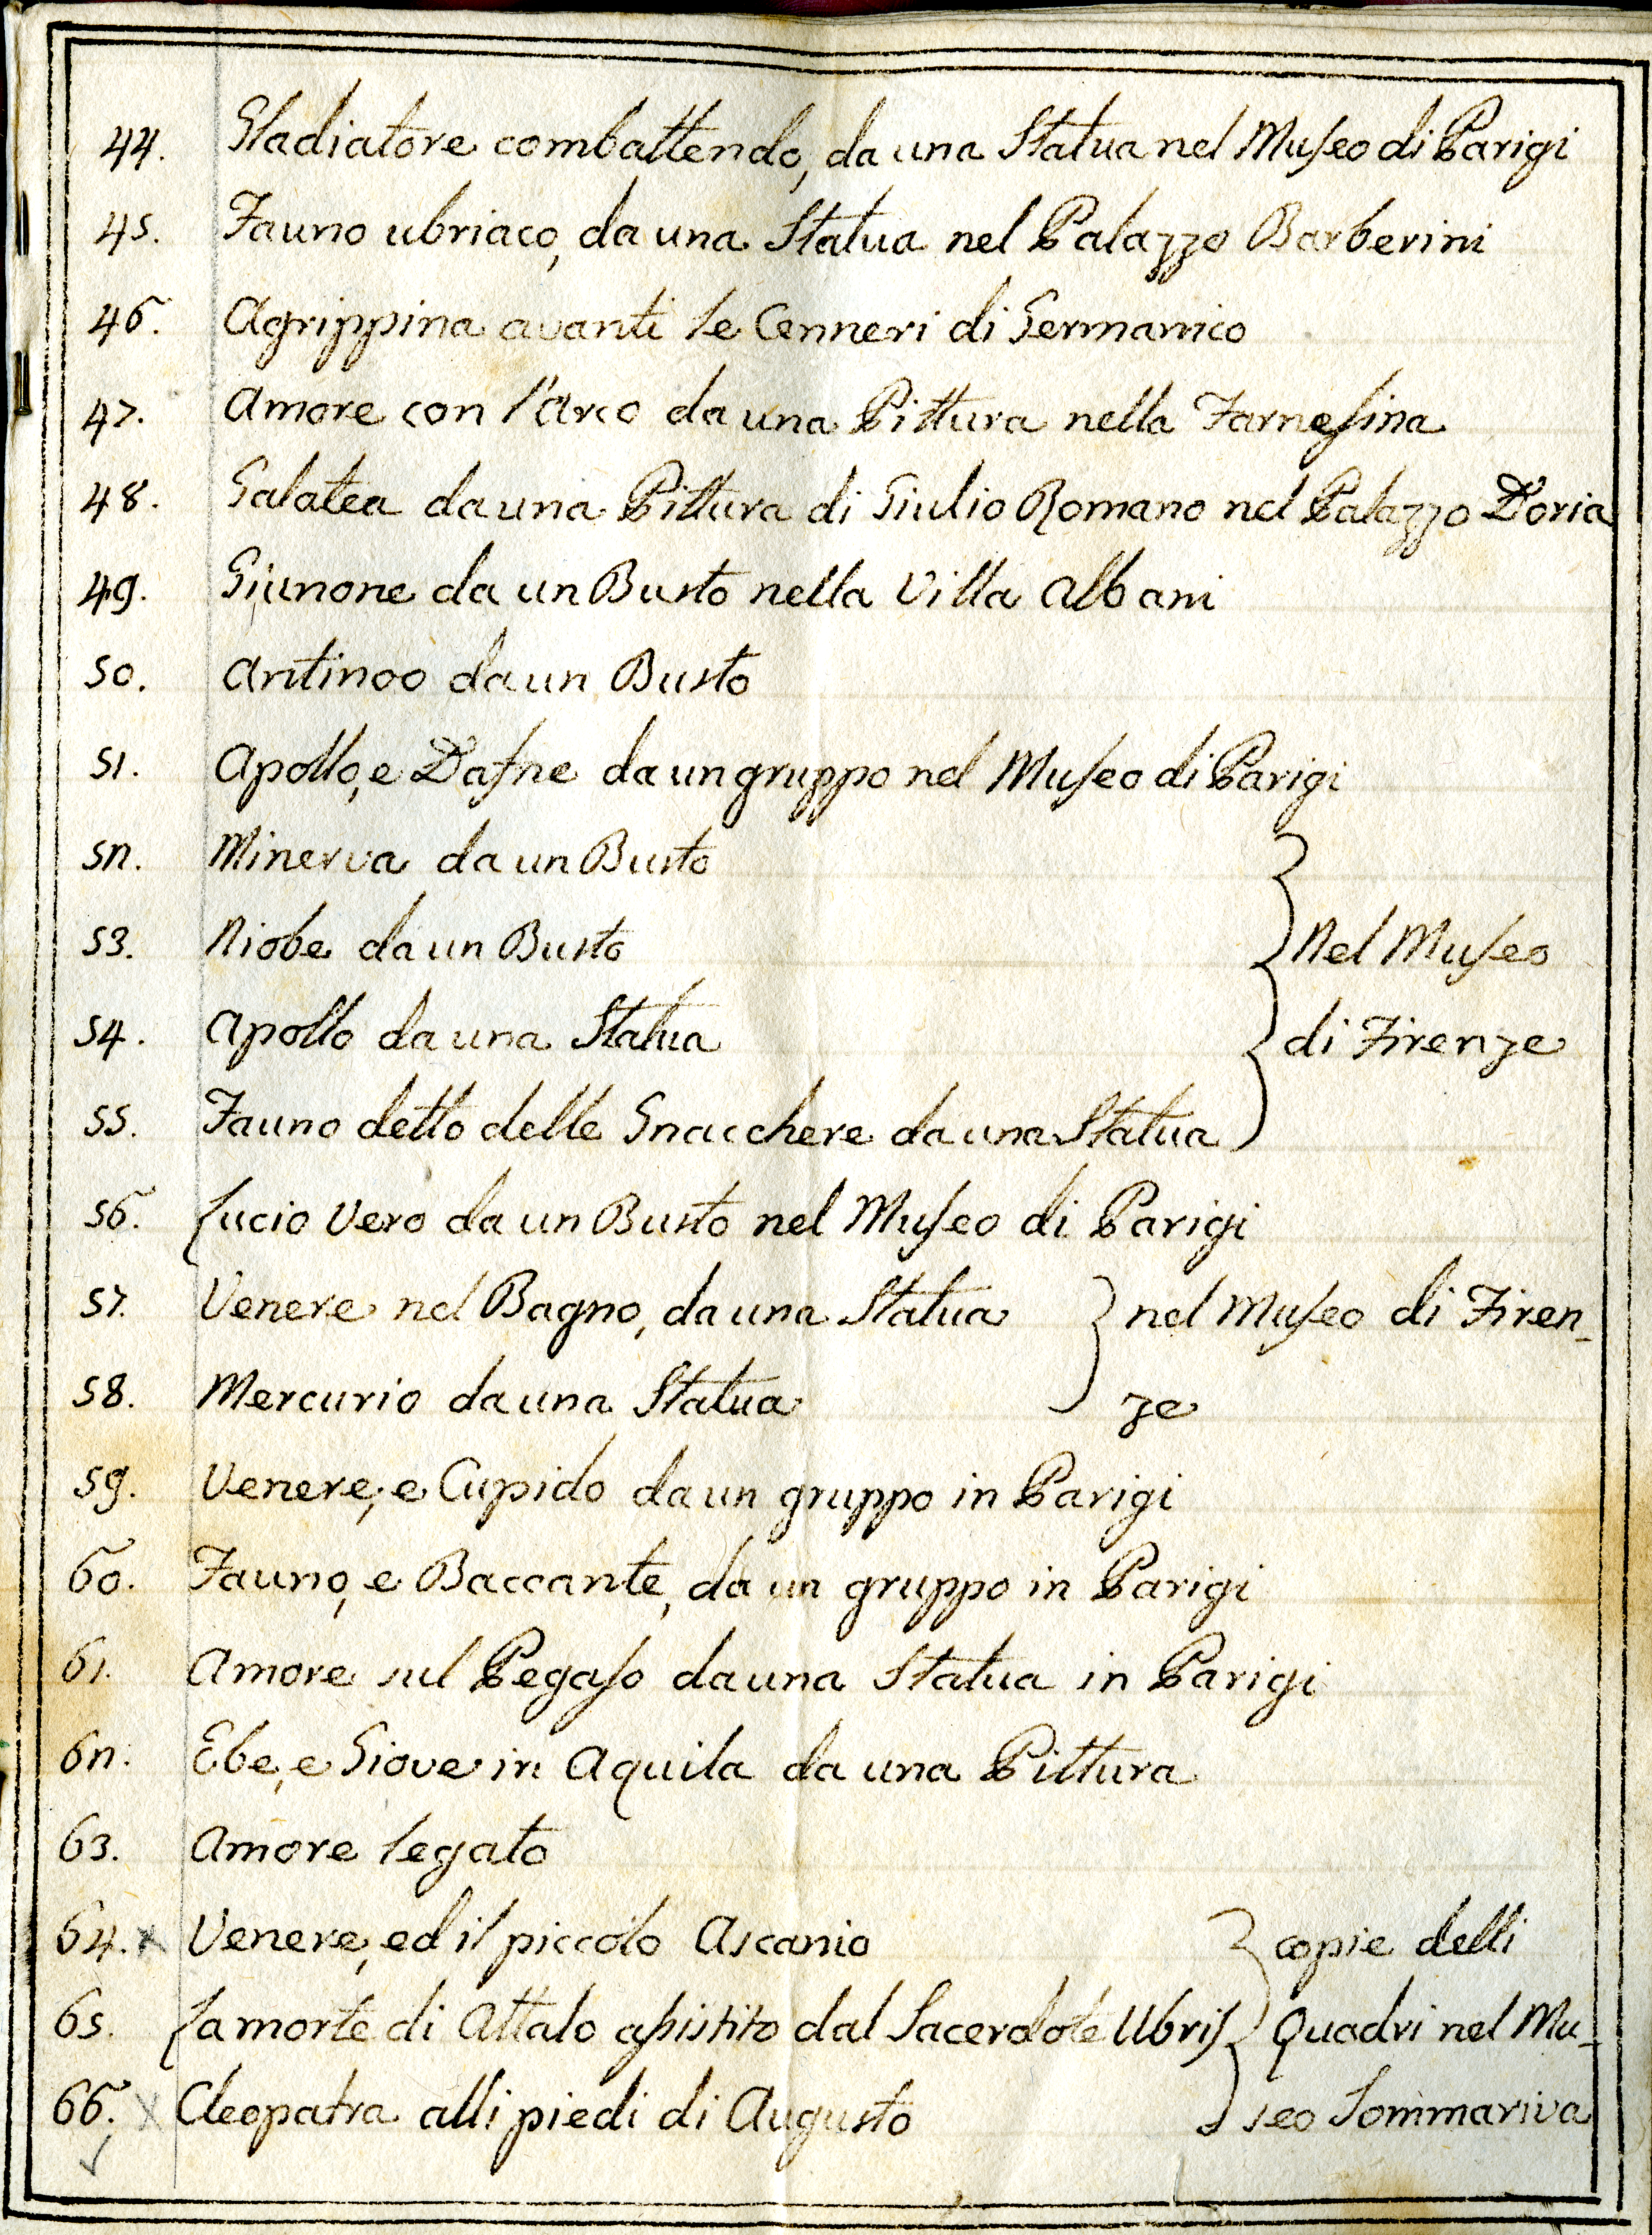 44. Gladiatore combattendo, da una Statua nel Museo di Parigi
45. Fauno ubriaco, da una Statua nel Palazzo Barberini
46. Agrippina avanti le Cenneri di Germanico
47. Amore con l'Arco da una Pittura nella Farnesina
48. Galatea da una Pittura di Giulio Romano nel Palazzo D'oria
49. Giunone da un Busto nella Villa Albani
50. Antinoo da un Busto
51. Apollo, e Dafne da un gruppo nel Museo di Parigi
52. Minerva da un Busto
53. Niobe da un Busto } Nel Museo
54. Apollo da una Statua } di Firenze
55. Fauno detto delle Gnacchere da una Statua
56. Lucio Vero da un Busto nel Museo di Parigi
57. Venere nel Bagno, da una Statua } nel Museo di Firen-
58. Mercurio da una Statua } ze
59. Venere, e Cupido da un gruppo in Parigi
60. Fauno, e Baccante, da un gruppo in Parigi
61. Amore sul Pegaso da una Statua in Parigi
62. Ebe, e Giove in Aquila da una Pittura
63. Amore legato
64. x Venere, ed il piccolo Ascanio } copie delli
65. La morte di Attalo assistito dal Sacerdote Ubris } Quadri nel Mu-
66. x Cleopatra alli piedi di Augusto } seo Sommariva